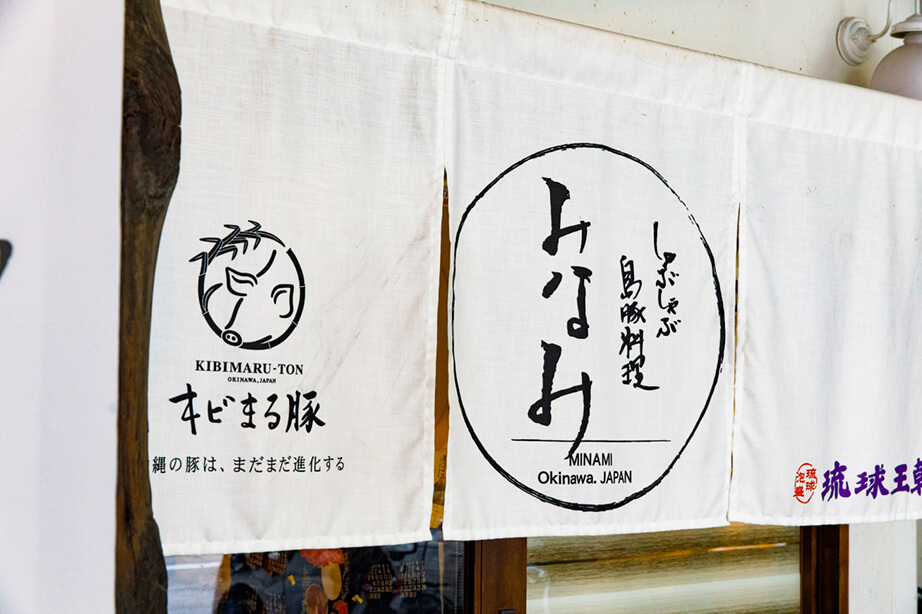 KIBIMARU-TON
OKINAWA, JAPAN
キビまる豚
縄の豚は、まだまだ進化する
しゃぶしゃぶ
島豚料理
みなみ
MINAMI
Okinawa. JAPAN
琉球
泡盛
琉球王朝